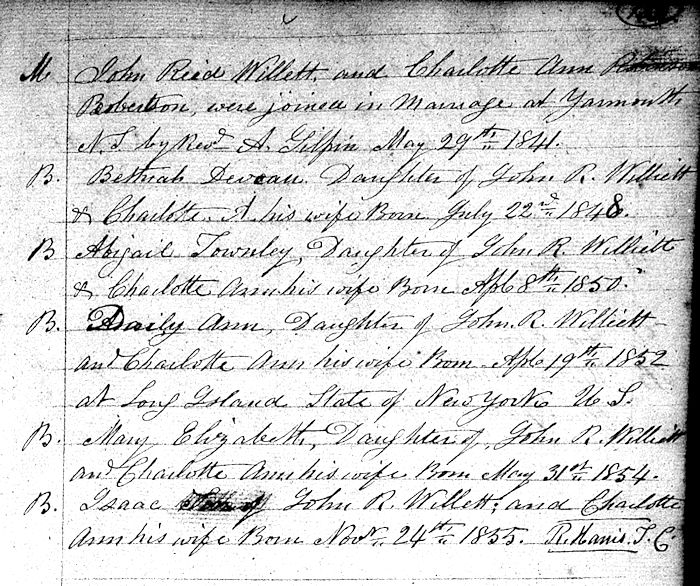 M John Reed Willett, and Charlotte Ann
Robertson, were joined in Marriage at Yarmouth
N.S. by Revd. A. Gilpin May 29th 1841.
B. Bethiah Deveau Daughter of John R. Williett
& Charlotte A. his wife Born July 22nd 1848.
B Abigail Townley, Daughter of John R. Williett
& Charlotte Ann his wife Born Apl 8th 1850.
B. Daily Ann, Daughter of John R. Williett
and Charlotte Ann his wife Born Apl 19th 1852
at Long Island State of New York U.S.
B. Mary Elizabeth, Daughter of John R. Williett
and Charlotte Ann his wife Born May 31st 1854.
B. Isaac John R. Willett; and Charlotte
Ann his wife Born Novr. 24th 1855. R. Harris T.C.